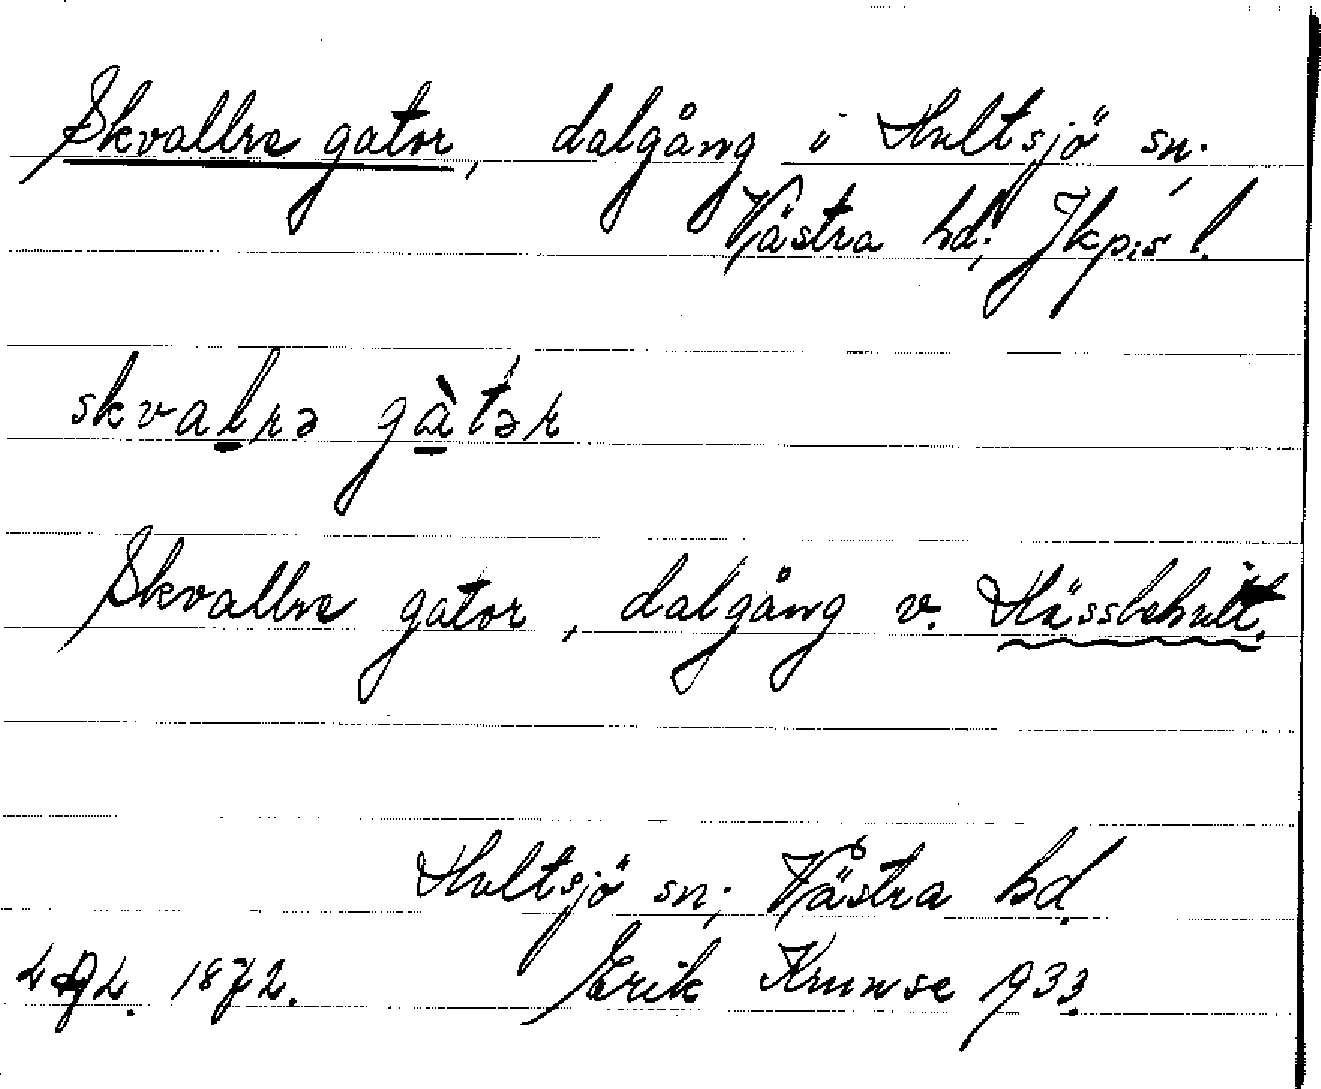 Skvallre gator, dalgång i Hultsjö sn;
Västra hd; Jkp:s l.
skvalrə gàtər
Skvallre gator, dalgång v. Hässlehult.
Hultsjö sn; Västra hd.
1872. Erik Krunse 1933.